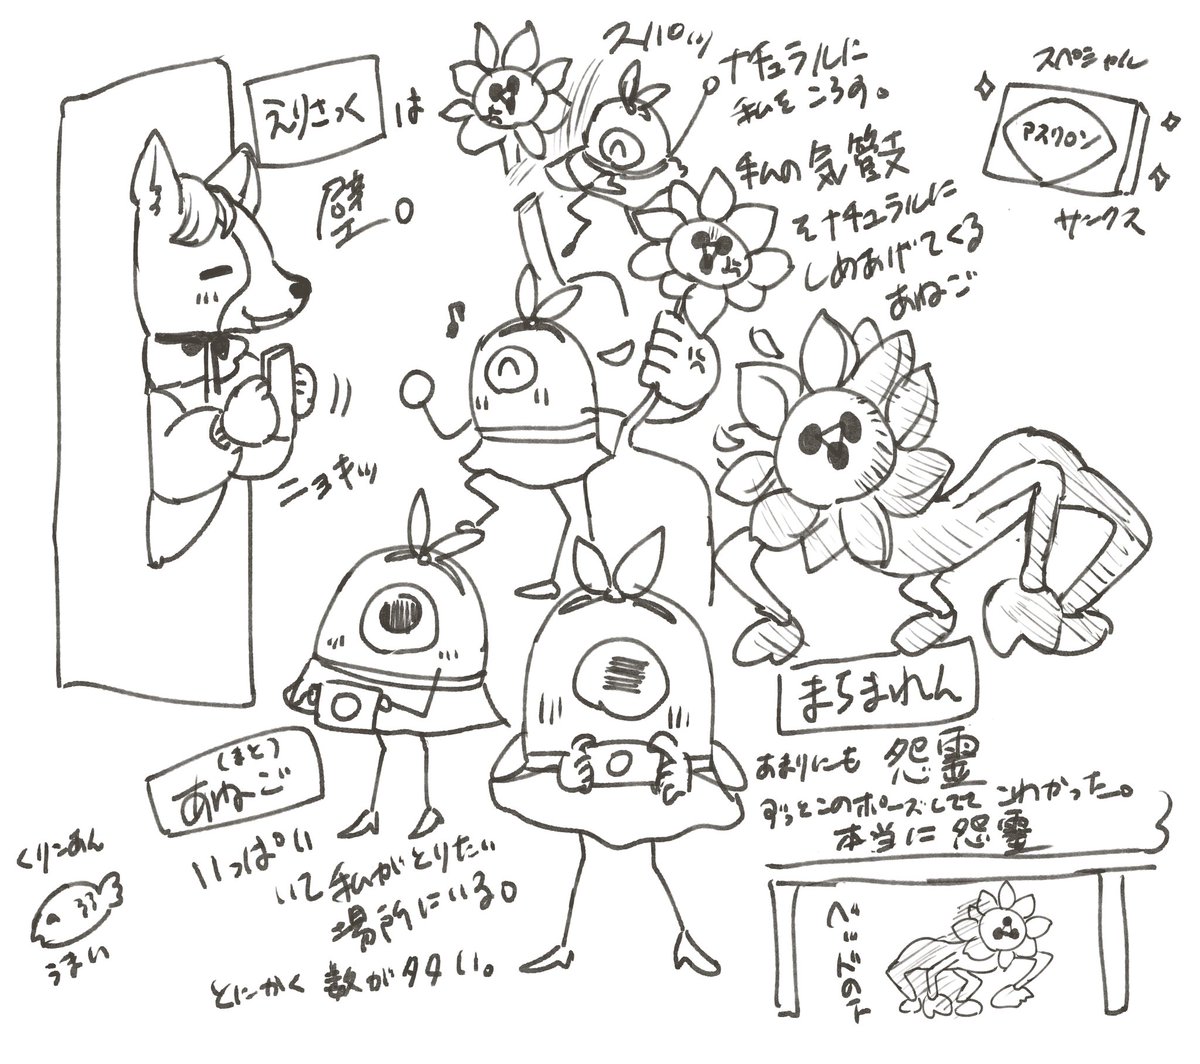 えりさっく は
壁。
ニョキッ
スパッッ
ナチュラルに
私を ころす。
私の 気管支
を ナチュラルに
しめあげてくる
あねご
スペシャル
アスクロン
サンクス
まちまれん
あまりにも 怨霊
ずっとこのポーズしてて こわかったー。
本当に 怨霊
ベッドの下
(まとつ)
あねご
いっぱい
いて 私がとりたい
場所にいる。
とにかく 数が多い。
くりーあん
うまい